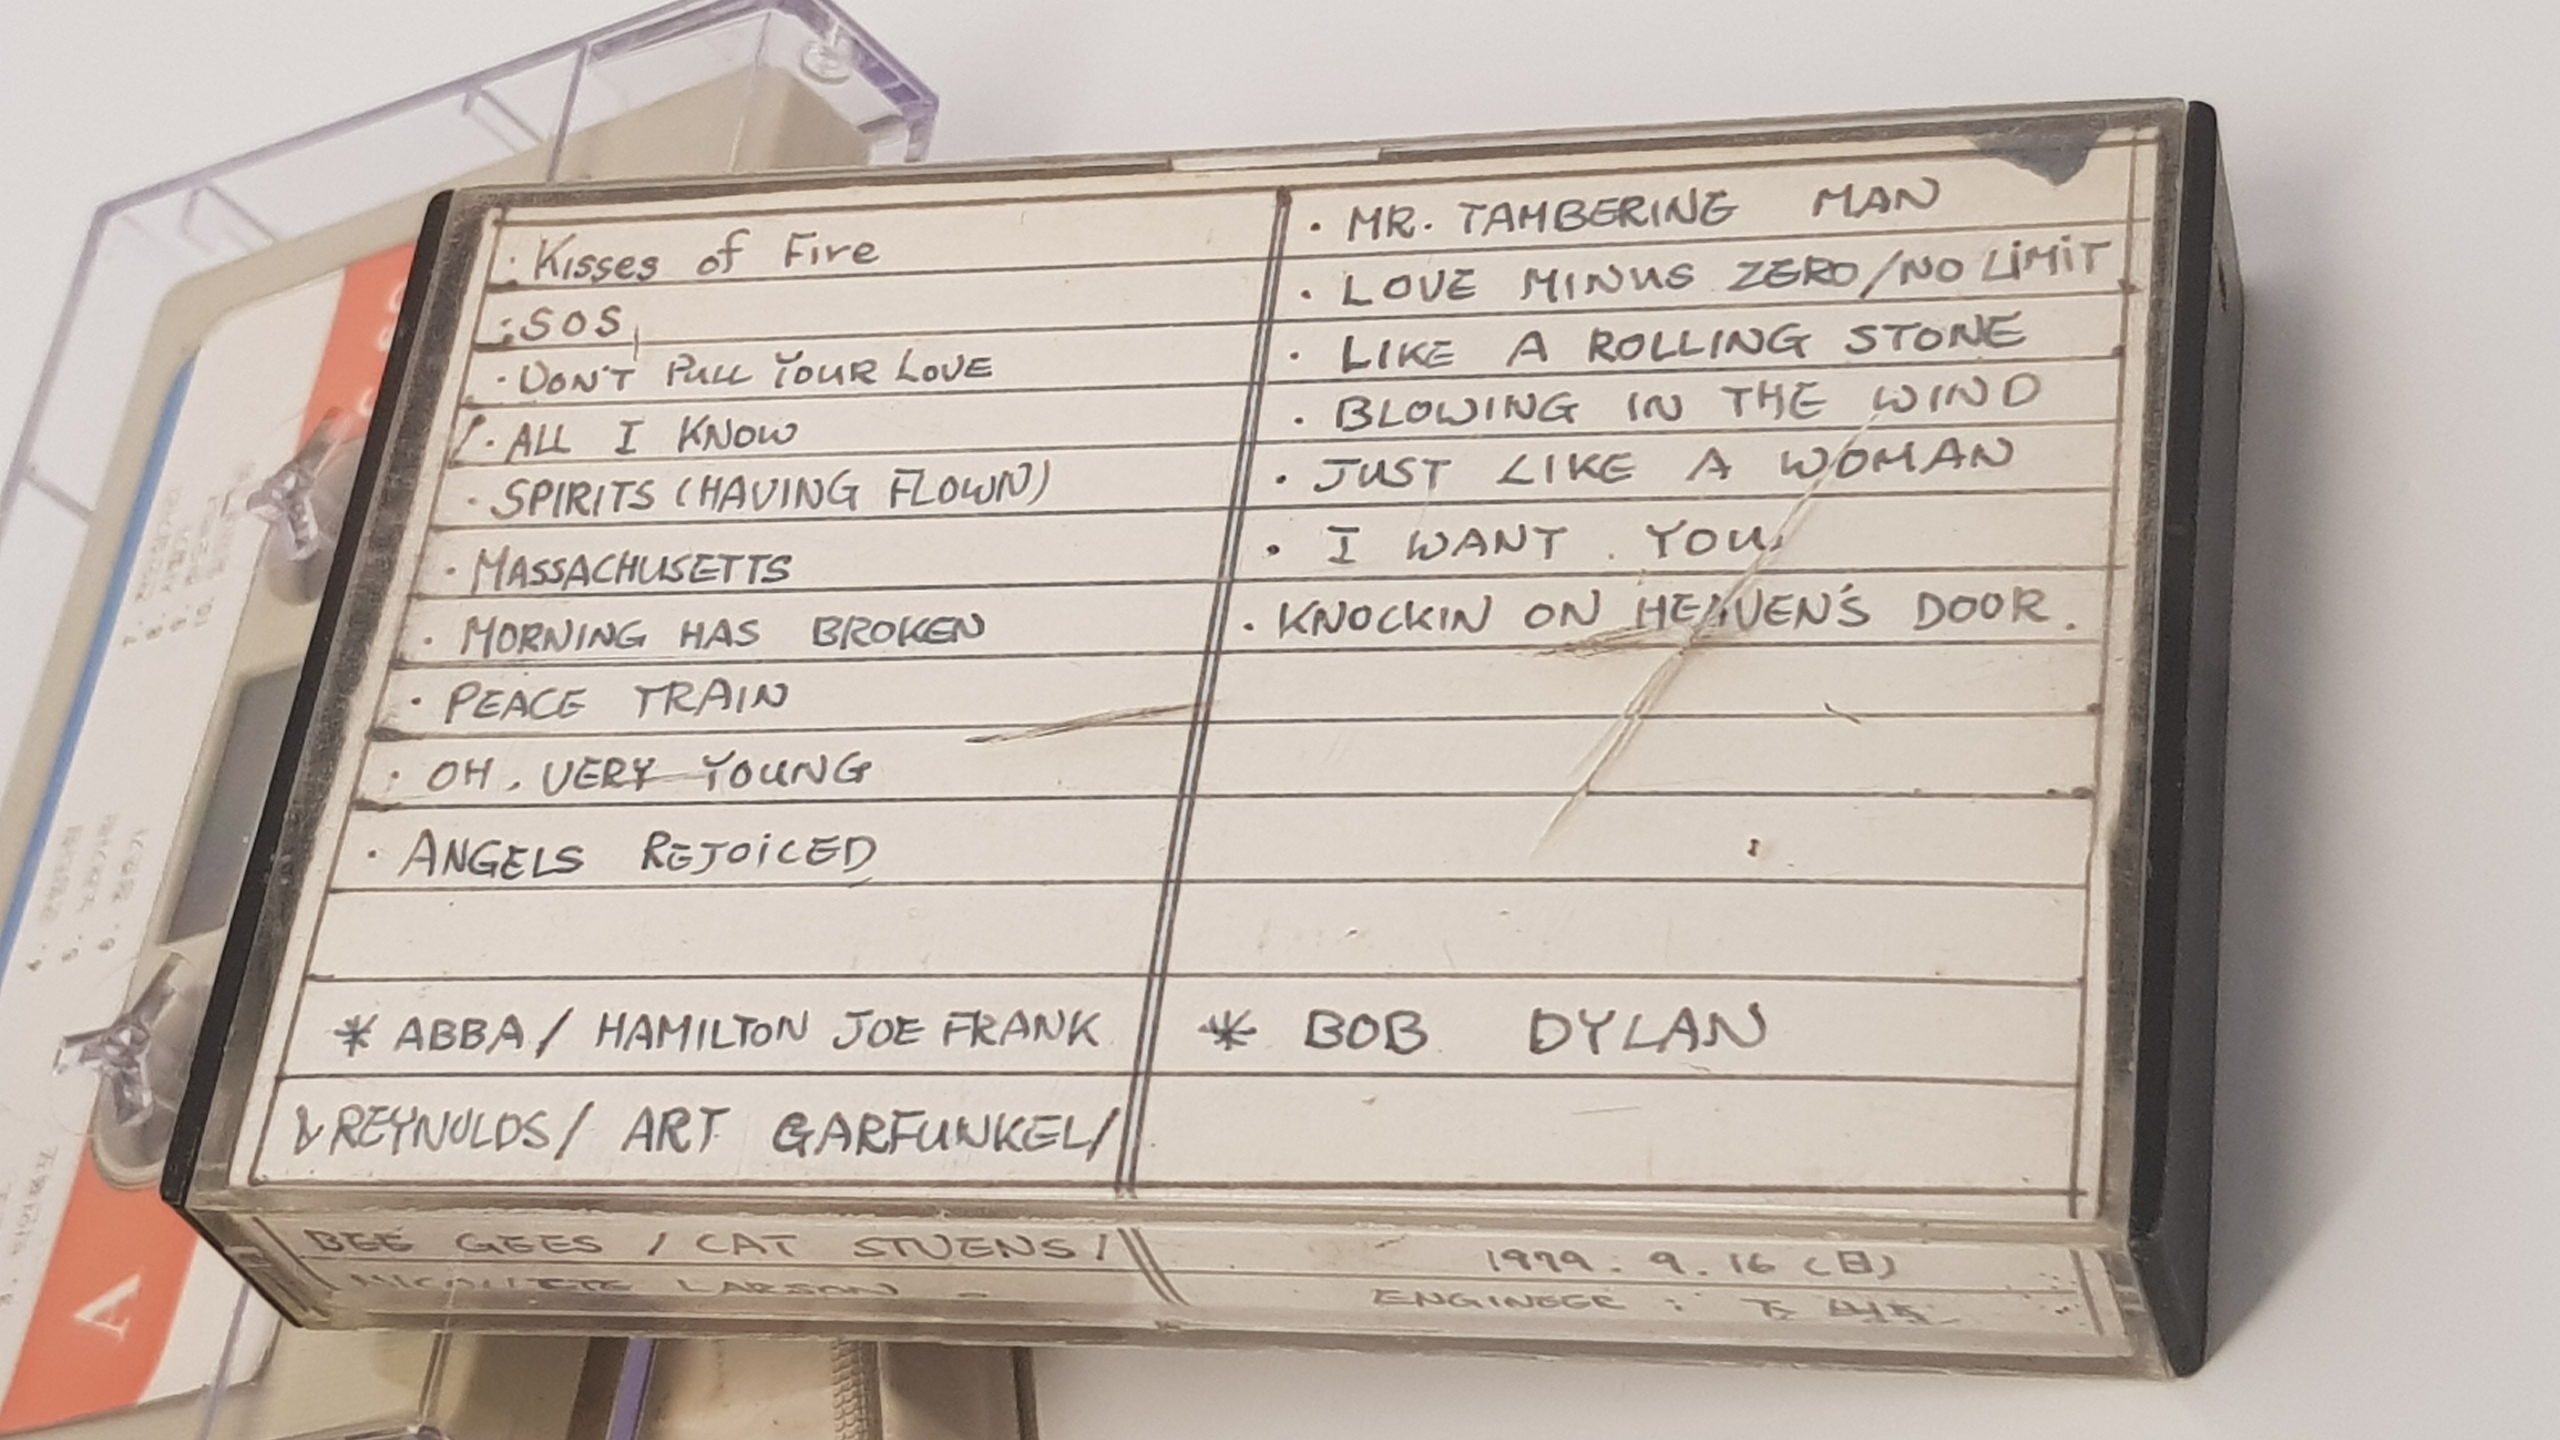 · Kisses of Fire
· SOS
· DON'T PULL YOUR LOVE
· ALL I KNOW
· SPIRITS (HAVING FLOWN)
· MASSACHUSETTS
· MORNING HAS BROKEN
· PEACE TRAIN
· OH, VERY YOUNG
· ANGELS REJOICED
* ABBA / HAMILTON JOE FRANK
& REYNOLDS / ART GARFUNKEL /
BEE GEES / CAT STUENS /
LARSON
· MR. TAMBERING MAN
· LOVE MINUS ZERO/NO LiMiT
· LIKE A ROLLING STONE
· BLOWING IN THE WIND
· JUST LIKE A WOMAN
· I WANT YOU
· KNOCKIN ON HEAVEN'S DOOR.
* BOB DYLAN
1979. 9. 16 (日)
ENGINEER :
A